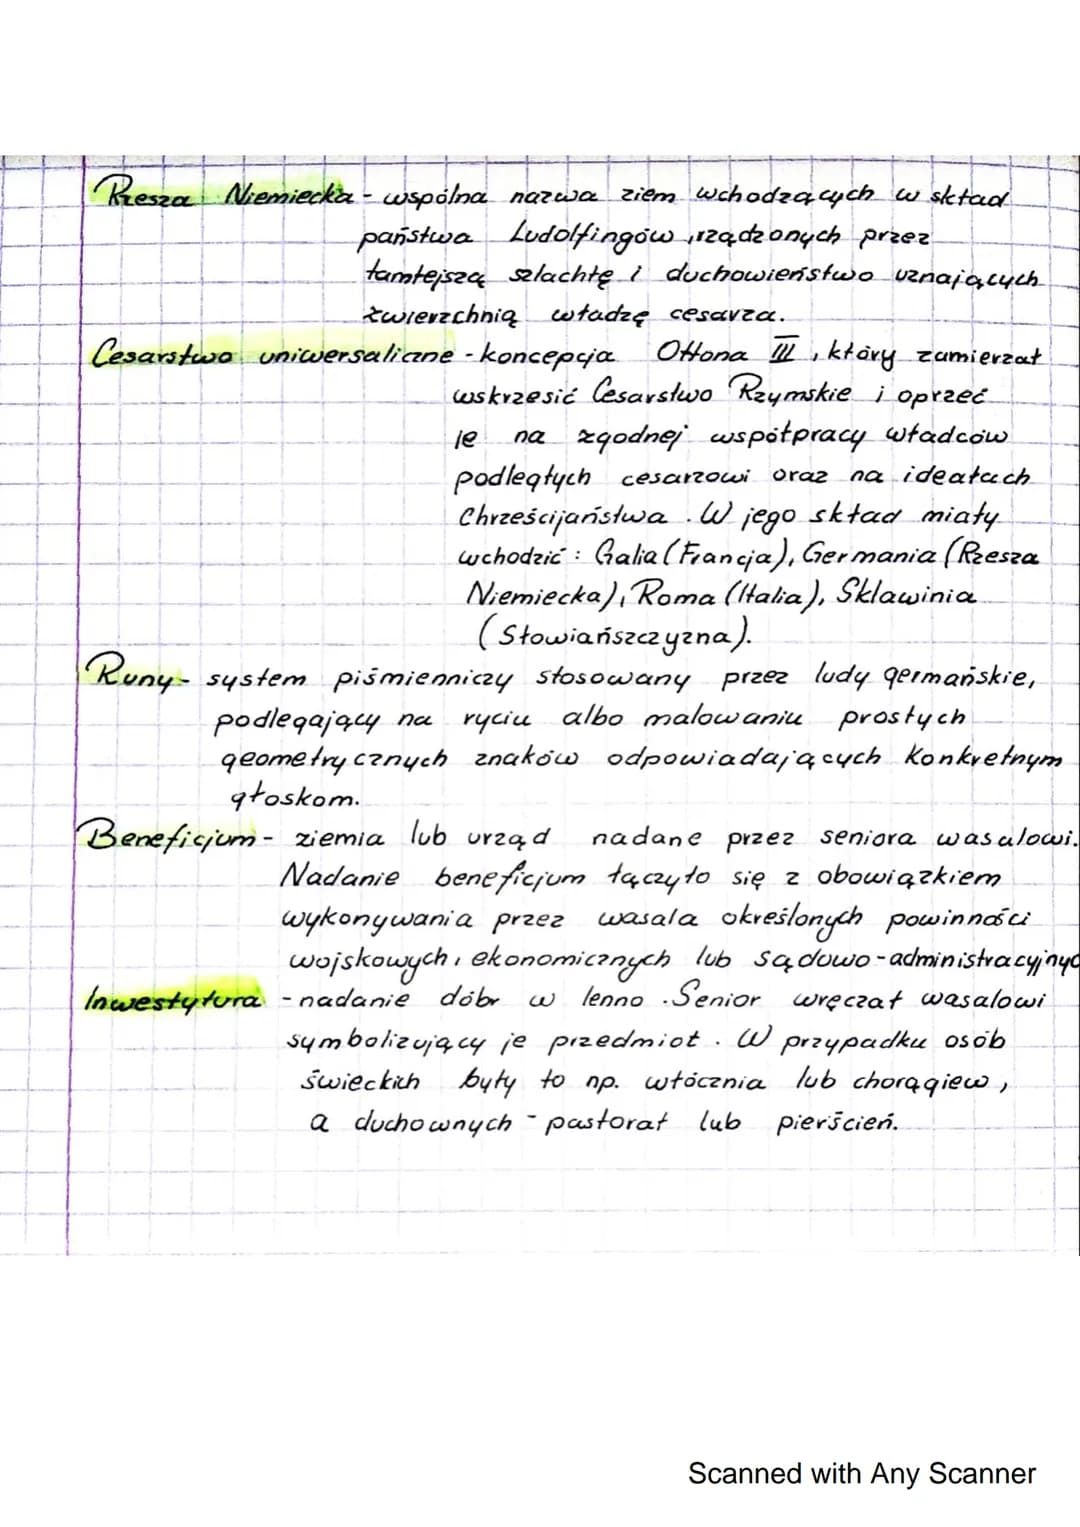 Rzesza Niemiecka - wspólna nazwa ziem wchodzących w skład
państwa Ludolfingów, rządzonych przez
tamtejszą szlachtę i duchowieństwo uznających
zwierzchnią władzę cesarza.
Cesarstwo uniwersaliczne - koncepcja Ottona III, który zamierzał
wskrzesić Cesarstwo Rzymskie i oprzeć
je na zgodnej współpracy władców
podległych cesarzowi oraz na ideałach
Chrześcijaństwa. W jego skład miały
wchodzić: Galia (Francja), Germania (Rzesza
Niemiecka), Roma (Italia), Sklawinia
(Słowiańszczyzna).
Runy - system piśmienniczy stosowany przez ludy germańskie,
podlegający na ryciu albo malowaniu prostych
geometrycznych znaków odpowiadających konkretnym
głoskom.
Beneficjum - ziemia lub urząd nadane przez seniora wasalowi.
Nadanie beneficjum łączyło się z obowiązkiem
wykonywania przez wasala określonych powinności
wojskowych, ekonomicznych lub sądowo-administracyjnyc
Inwestytura - nadanie dóbr w lenno. Senior wręczał wasalowi
symbolizujący je przedmiot. W przypadku osób
świeckich były to np. włócznia lub chorągiew,
a duchownych - pastorał lub pierścień.
Scanned with Any Scanner